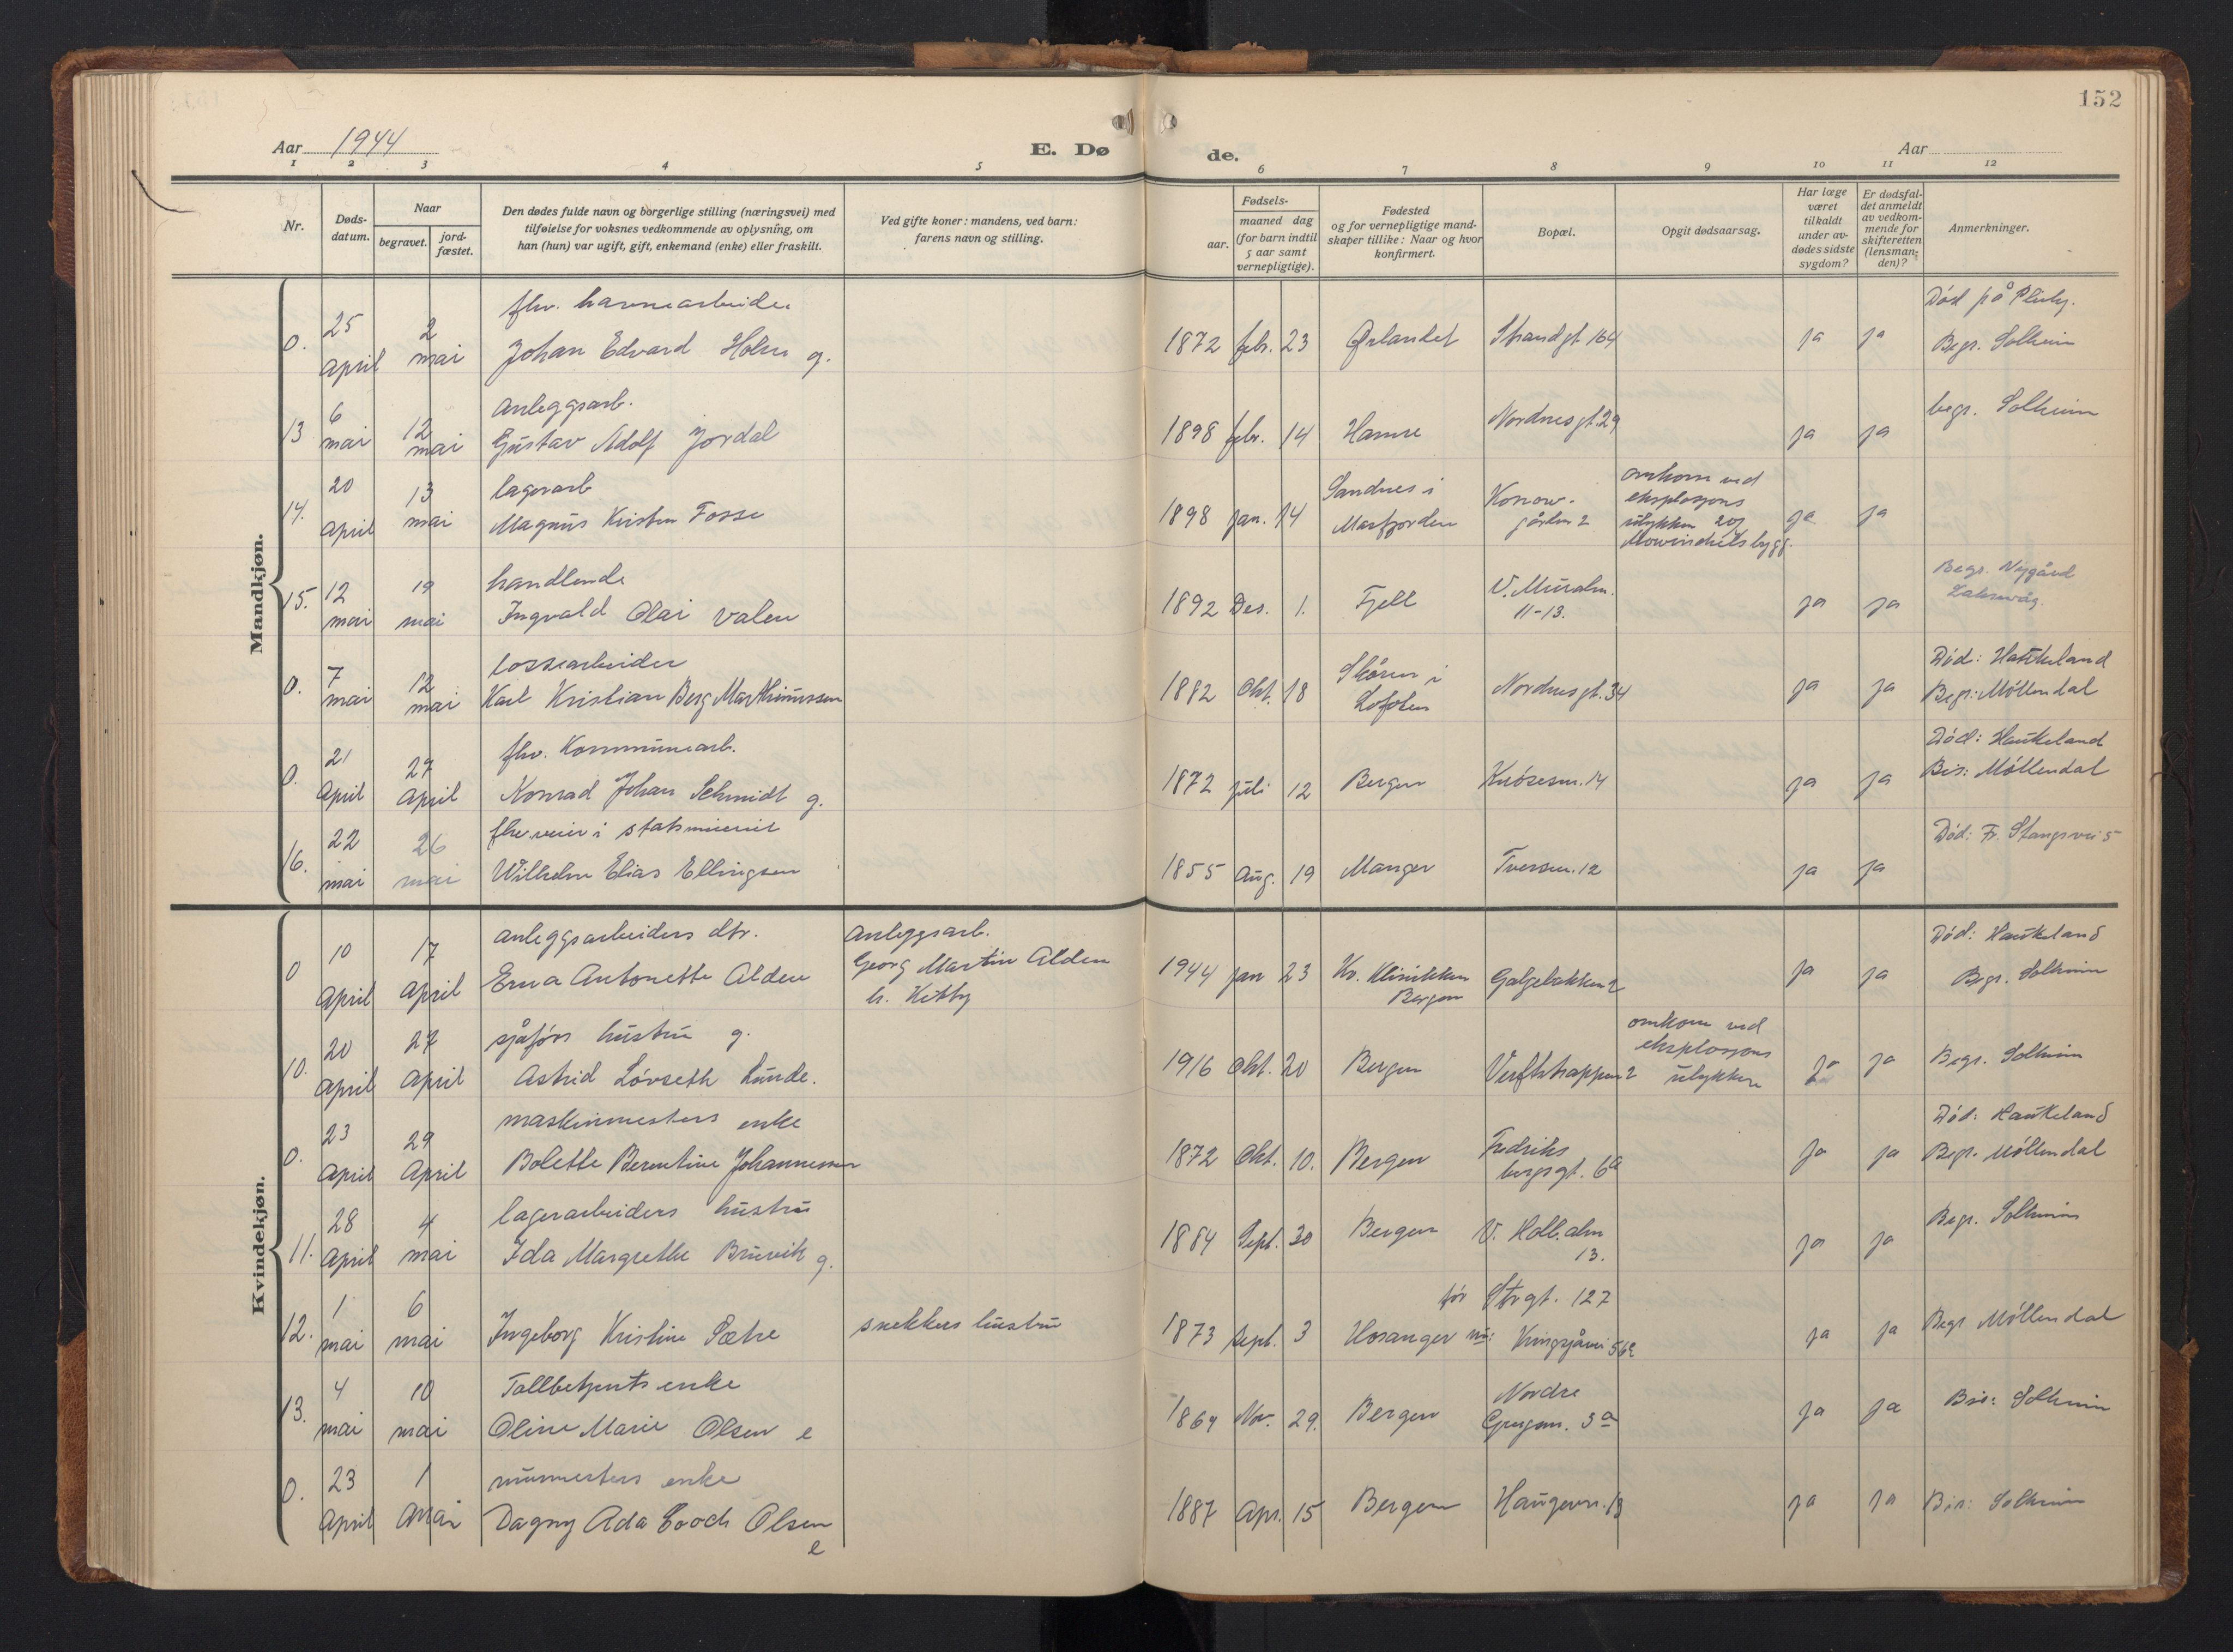 152
Aar 1944
E. Dø
de.
Aar
1 2 3 4 5 6 7 8 9 10 11 12
Nr.
Døds-
datum.
Naar
begravet.
jord-
fæstet.
Den dødes fulde navn og borgerlige stilling (næringsvei) med
tilføielse for voksnes vedkommende av oplysning, om
han (hun) var ugift, gift, enkemand (enke) eller fraskilt.
Ved gifte koner: mandens, ved barn:
farens navn og stilling.
Fødsels-
aar.
maaned dag
(for barn indtil
5 aar samt
vernepligtige).
Fødested
og for vernepligtige mand-
skaper tillike: Naar og hvor
konfirmert.
Bopæl.
Opgit dødsaarsag.
Har læge
været
tilkaldt
under av-
dødes sidste
sygdom?
Er dødsfal-
det anmeldt
av vedkom-
mende for
skifteretten
(lensman-
den)?
Anmerkninger.
Mandkjøn.
0. 25 april 2 mai
fhv. havnearbeider
Johan Edvard Holm g.
1872 febr. 23 Ørlandet Strandgt. 164 ja ja
Død på
Begr. Solheim
13 6 mai 12 mai
anleggsarb.
Gustav Adolf Jordal
1898 febr. 14 Hamre Nordnesgt. 29 ja ja
begr. Solheim
14. 20 april 13 mai
lagerarb
Magnus Kristen Fosse
1898 jan. 14
Sandnes i
Masfjorden
2
omkom ved
eksplosjons
ulykken 20/
ja ja
15. 12 mai 19 mai
handlende
Ingvald Olai Valen
1892 Des. 1. Fjell
V. Muralm.
11-13.
ja ja
Begr. Nygård
Laksevåg.
0. 7 mai 12 mai
lossearbeider
Karl Kristian Berg Marthinussen
1882 Okt. 18
i
Lofoten
Nordnesgt. 34 ja ja
Død: Haukeland
Begr: Möllendal
0. 21 April 27 April
fhv. Kommunearb.
Konrad Johan Schmidt g.
1872 juli 12 Bergen Knösesm. 14 ja ja
Död: Haukeland
Bis: Möllendal
16. 22 mai 26 mai
fhv. i
Wilhelm Elias Ellingsen
1855 Aug. 19 Manger Tversm. 12 ja ja
Död: Fr. Stangsvei 5
Kvindekjøn.
0 10 April 17 April
anleggsarbeiders dtr.
Erna Antonette Alden
Anleggsarb.
Georg Martin Alden
h. Kitty
1944 jan 23
Kv. Klinikken
Bergen
Galgebakken 2 ja ja
Död: Haukeland
Begr. Solheim
10. 20 April 27 April
sjåførs hustru g.
Astrid Lövseth Lunde.
1916 Okt. 20 Bergen Verftstrappen 2
omkom ved
eksplosjons
ulykken
ja ja
Begr. Solheim
0. 23 April 29 April
maskinmesters enke
Bolette Berentine Johannessen
1872 Okt. 10. Bergen
Fredriks
bergsgt. 6a
ja ja
Död: Haukeland
Begr. Möllendal
11. 28 April 4 mai
lagerarbeiders hustru
Ida Margrethe Bruvik g.
1884 Sept. 30 Bergen
V. Holb.alm
13.
ja ja
Begr. Solheim
12. 1 mai 6 mai
Ingeborg Kristine Sætre
snekkers hustru
1873 Sept. 3 Hosanger
för Strgt. 127
nu: Kringsjåvei 56a
ja ja
Begr Möllendal
13. 4 mai 10 mai
Tollbetjents enke
Oline Marie Olsen e
1864 Nov. 29. Bergen
Nordre
3a
ja ja
Bis: Solheim
0. 23 April 1 mai
murmesters enke
Dagny Ada Olsen
e
1887 Apr. 15 Bergen Haugevn. 13 ja ja
Bis: Solheim